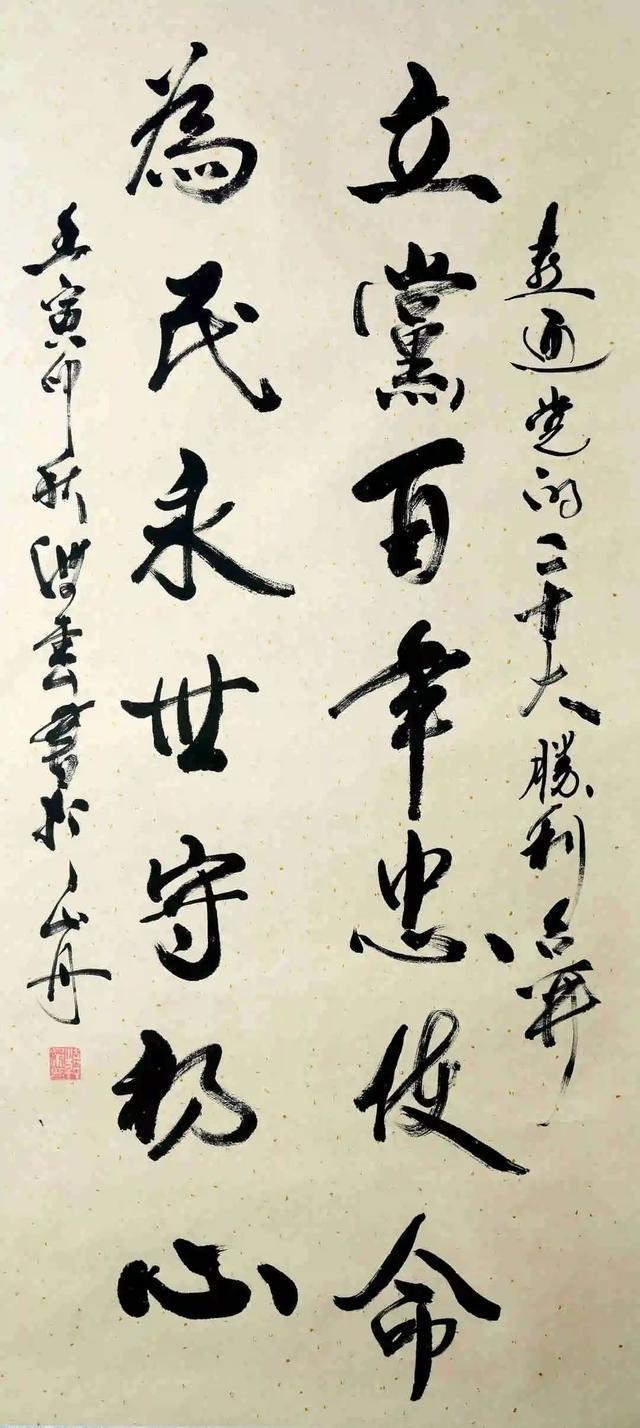 喜迎党的二十大勝利召開
立黨百年忠使命
為民永世守初心
壬寅仲秋雲書於山丹